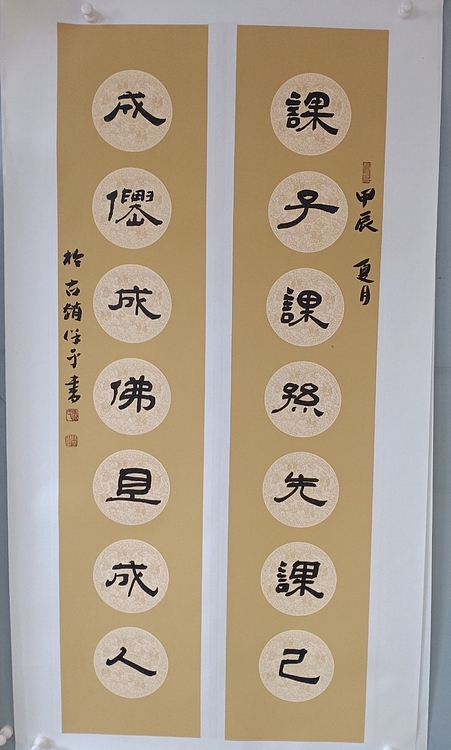 課子課孫先課己
甲辰 夏月
成僊成佛且成人
於古 平書